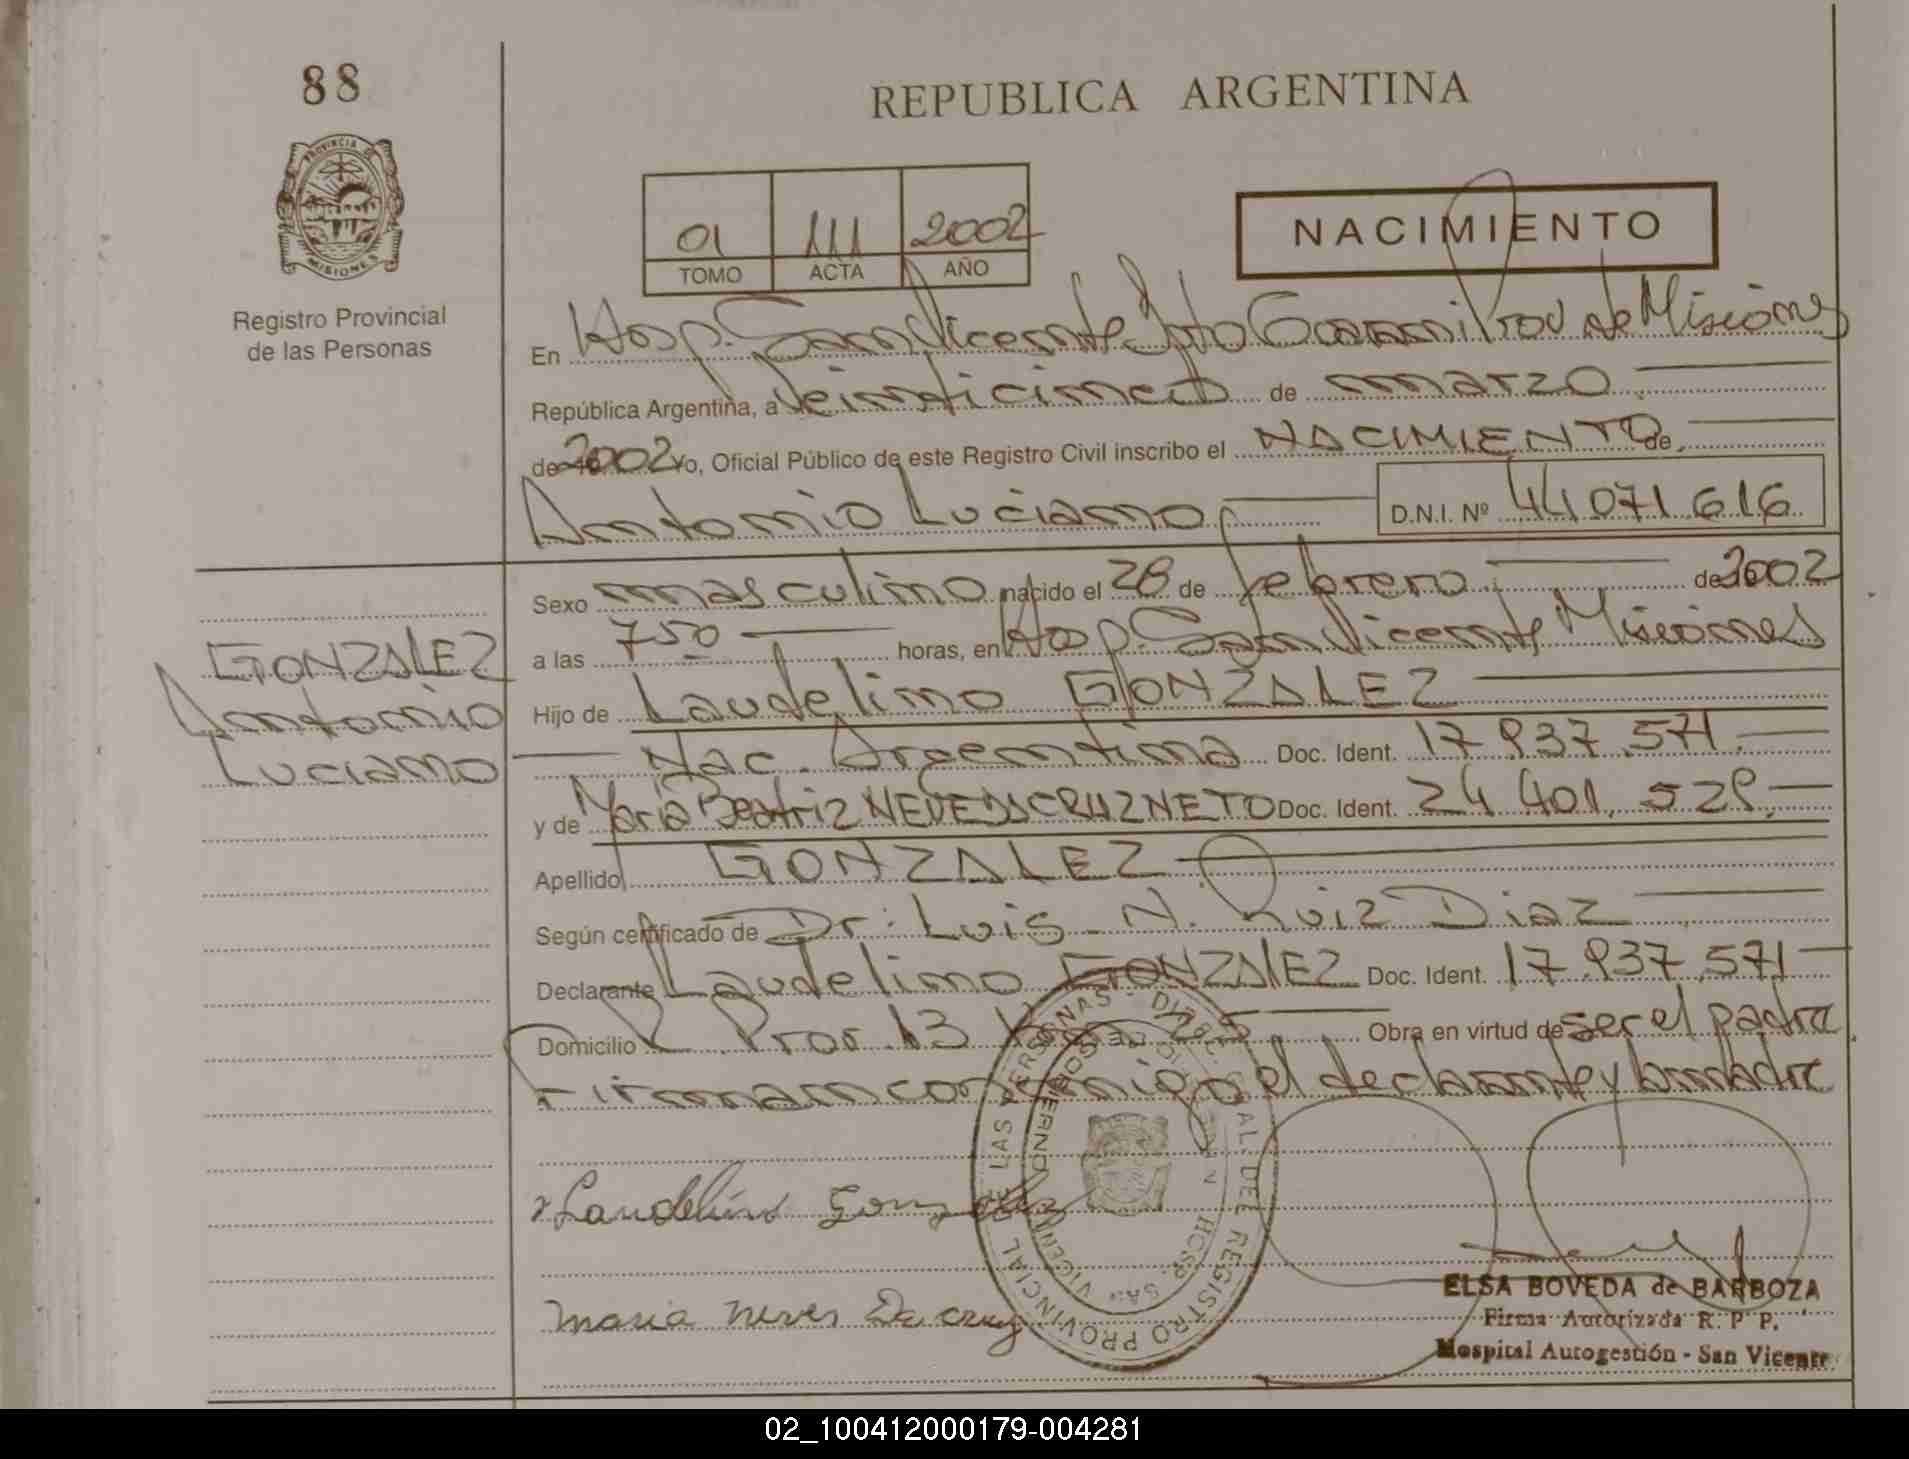 88
REPUBLICA ARGENTINA
PROVINCIA DE
MISIONES
Registro Provincial
de las Personas
01 111 2002
TOMO ACTA AÑO
NACIMIENTO
En Hosp. San Vicente Dpto Guarani Prov de Misiones
República Argentina, a Veinticinco de marzo
de 2002 Yo, Oficial Público de este Registro Civil inscribo el NACIMIENTO de
Antonio Luciano
D.N.I. Nº 44 071 616
Sexo masculino nacido el 28 de febrero de 2002
a las 7 50 horas, en Hosp. San Vicente Misiones
GONZALEZ
Antonio
Luciano
Hijo de Laudelino GONZALEZ
Nac. Argentina Doc. Ident. 17 937 571
y de Maria Beatriz NEVE DA CRUZ NETO Doc. Ident. 24 401 529
Apellido GONZALEZ
Según certificado de Dr: Luis N. Ruiz Diaz
Declarante Laudelino GONZALEZ Doc. Ident. 17 937 571
Domicilio R. Prov. 13 Obra en virtud de ser el padre
Firman conmigo el declarante y la madre
Laudelino Gonzalez
maria neves Da cruz
REGISTRO PROVINCIAL DE LAS PERSONAS
ELSA BOVEDA de BARBOZA
Firma Autorizada R. P. P.
Hospital Autogestión - San Vicente
02_100412000179-004281